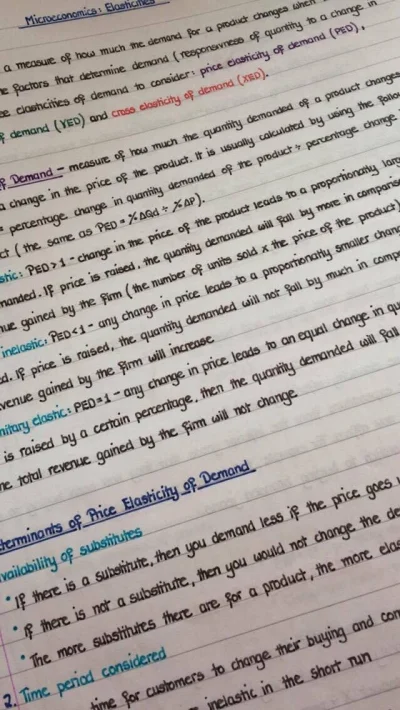 Microeconomics: Elasticities
a measure of how much the demand for a product changes when
factors that determine demand (responsivness of quantity to a change in
elasticities of demand to consider: price elasticity of demand (PED),
demand (YED) and cross elasticity of demand (XED).
of Demand - measure of how much the quantity demanded of a product changes
a change in the price of the product. It is usually calculated by using the
percentage change in quantity demanded of the product ÷ percentage change
(the same as PED = %ΔQd ÷ %ΔP).
PED>1 - change in the price of the product leads to a proportionally
If price is raised, the quantity demanded will fall by more in
gained by the firm (the number of units sold x the price of the product)
inelastic: PED<1 - any change in price leads to a proportionally smaller
If price is raised, the quantity demanded will not fall by much in
revenue gained by the firm will increase
elastic: PED=1 - any change in price leads to an equal change in
is raised by a certain percentage, then the quantity demanded will fall
total revenue gained by the firm will not change
Determinants of Price Elasticity of Demand
Availability of substitutes
• If there is a substitute, then you demand less if the price goes
• If there is not a substitute, then you would not change the
• The more substitutes there are for a product, the more
2. Time period considered
time for customers to change their buying and
inelastic in the short run